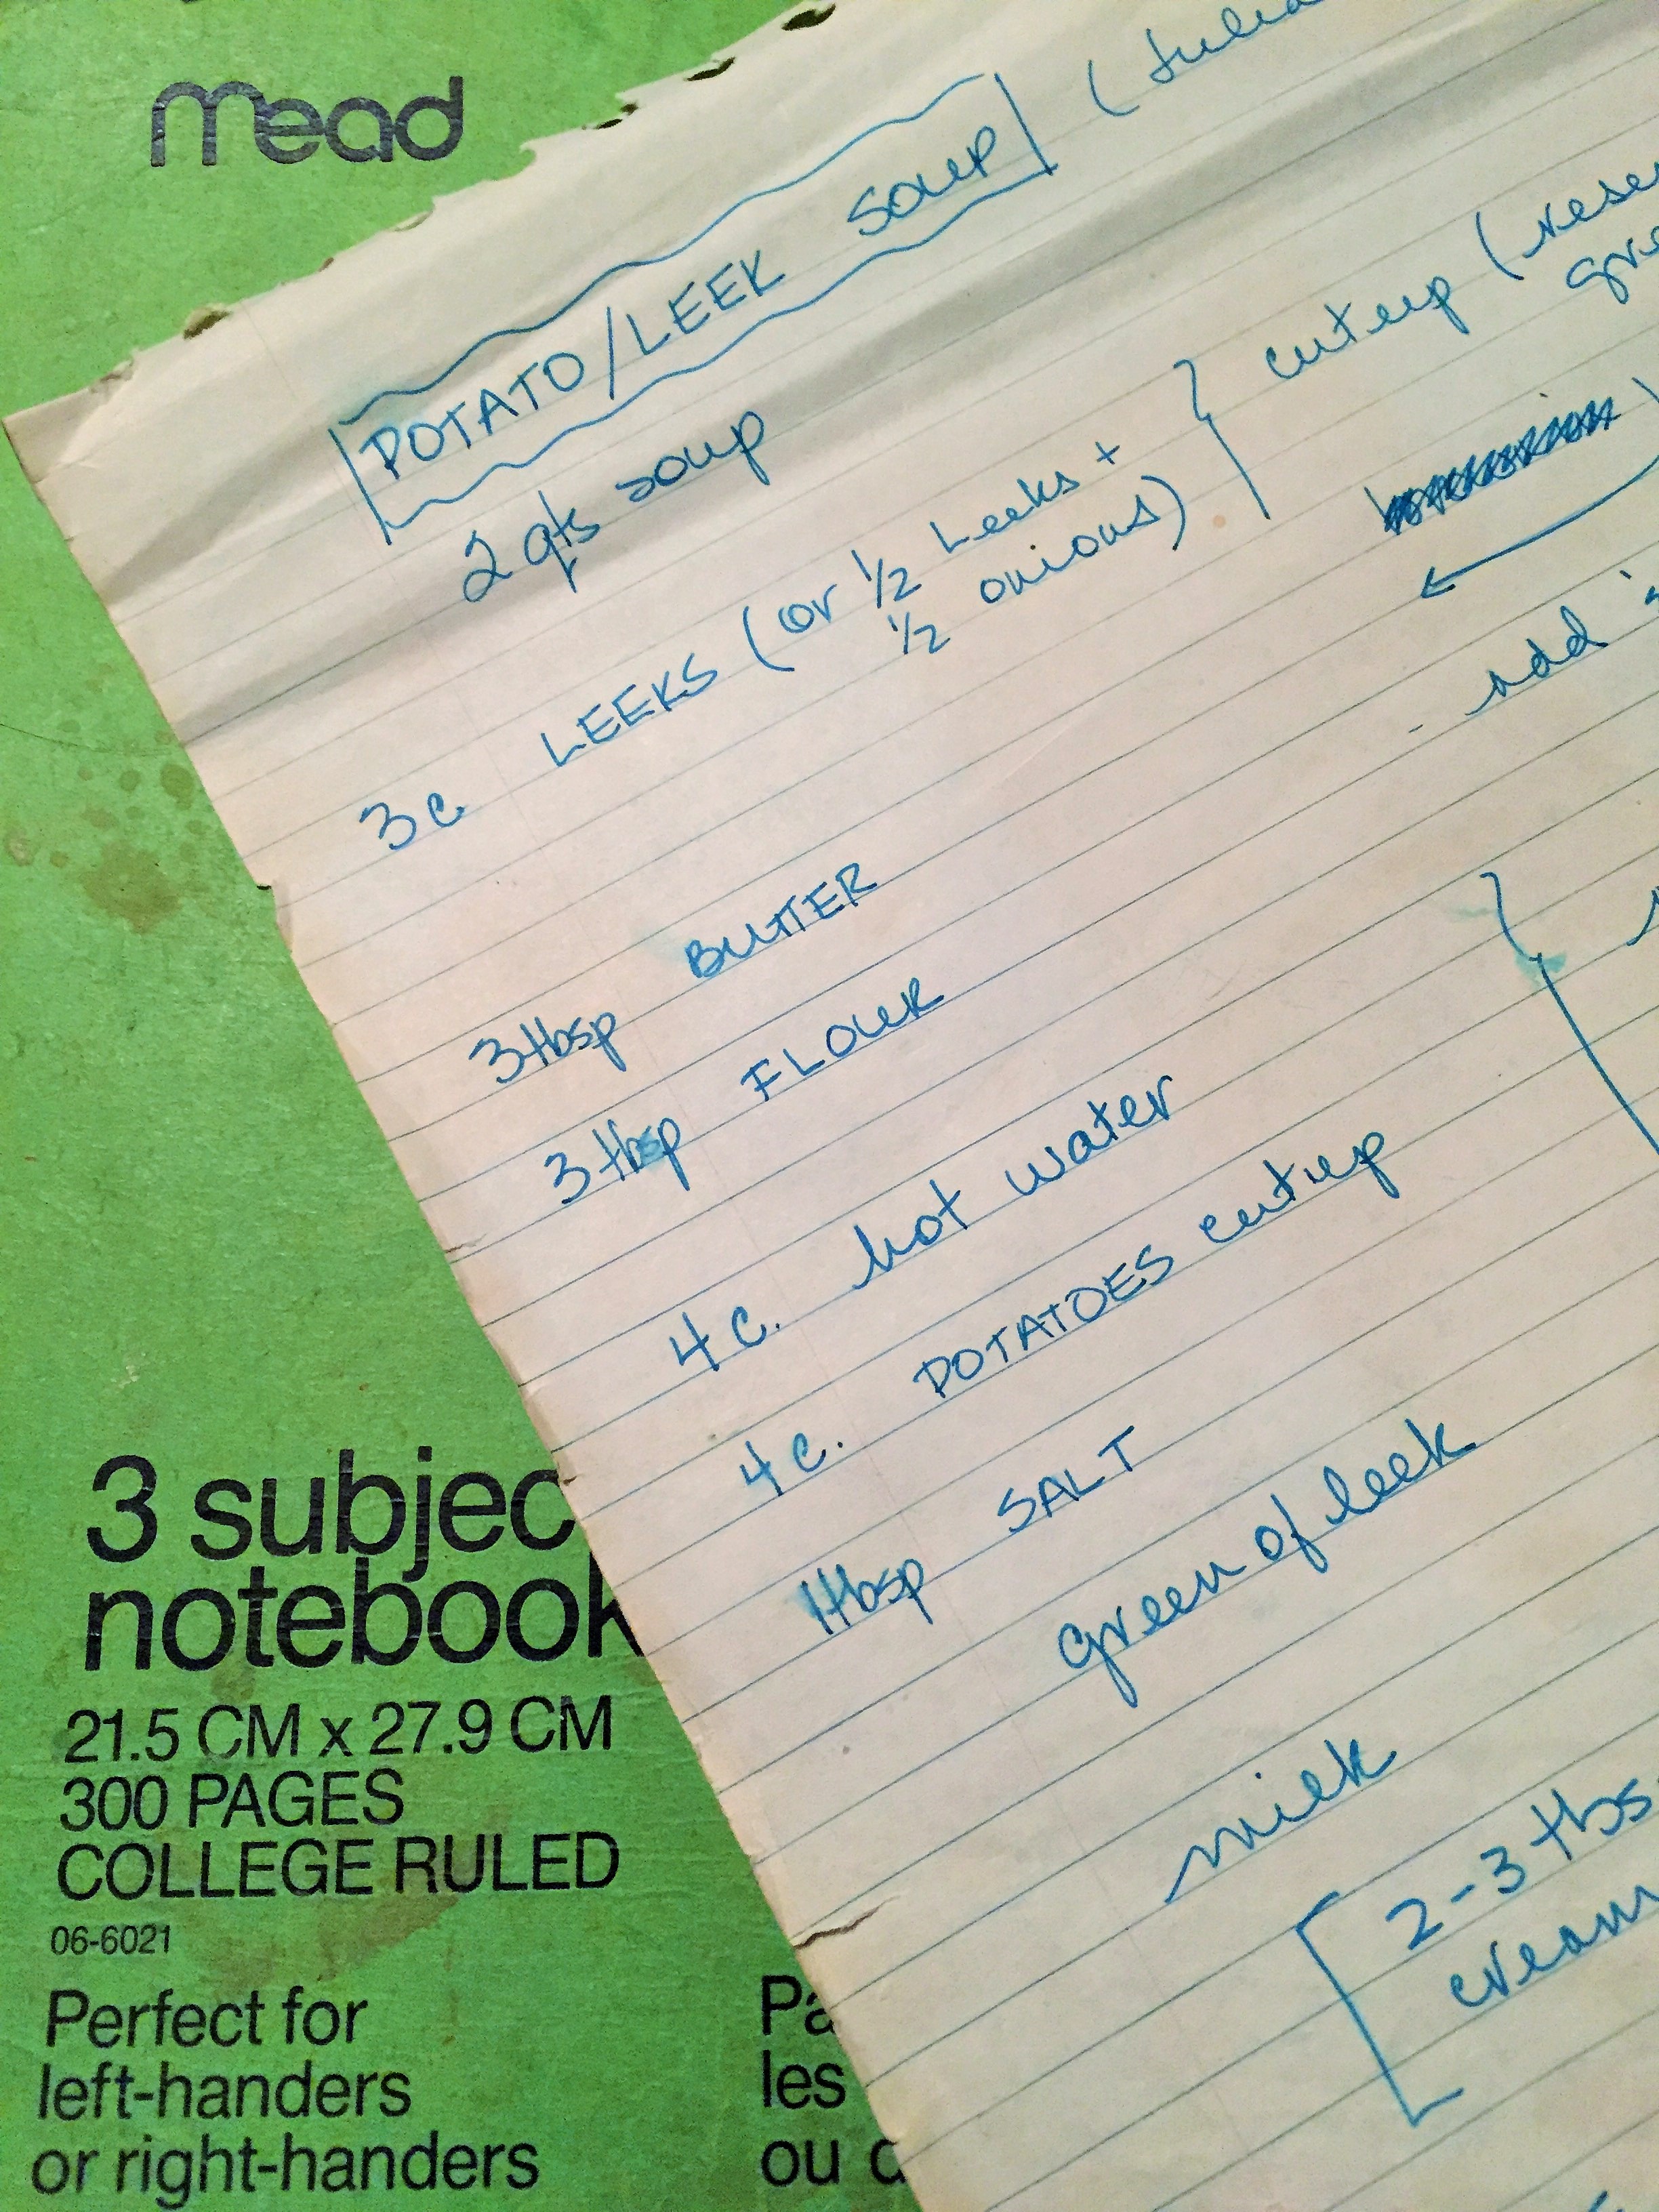 mead
POTATO/LEEK SOUP
2 qts soup
3 c LEEKS (or 1/2 Leeks +
1/2 onions)
cut up
3 tbsp BUTTER
3 tbsp FLOUR
add
4 c. hot water
4 c. POTATOES cut up
1 tbsp SALT
green of leek
milk
2-3 tbs
cream
3 subjec
notebook
21.5 CM x 27.9 CM
300 PAGES
COLLEGE RULED
06-6021
Perfect for
left-handers
or right-handers
Pa
les
ou d